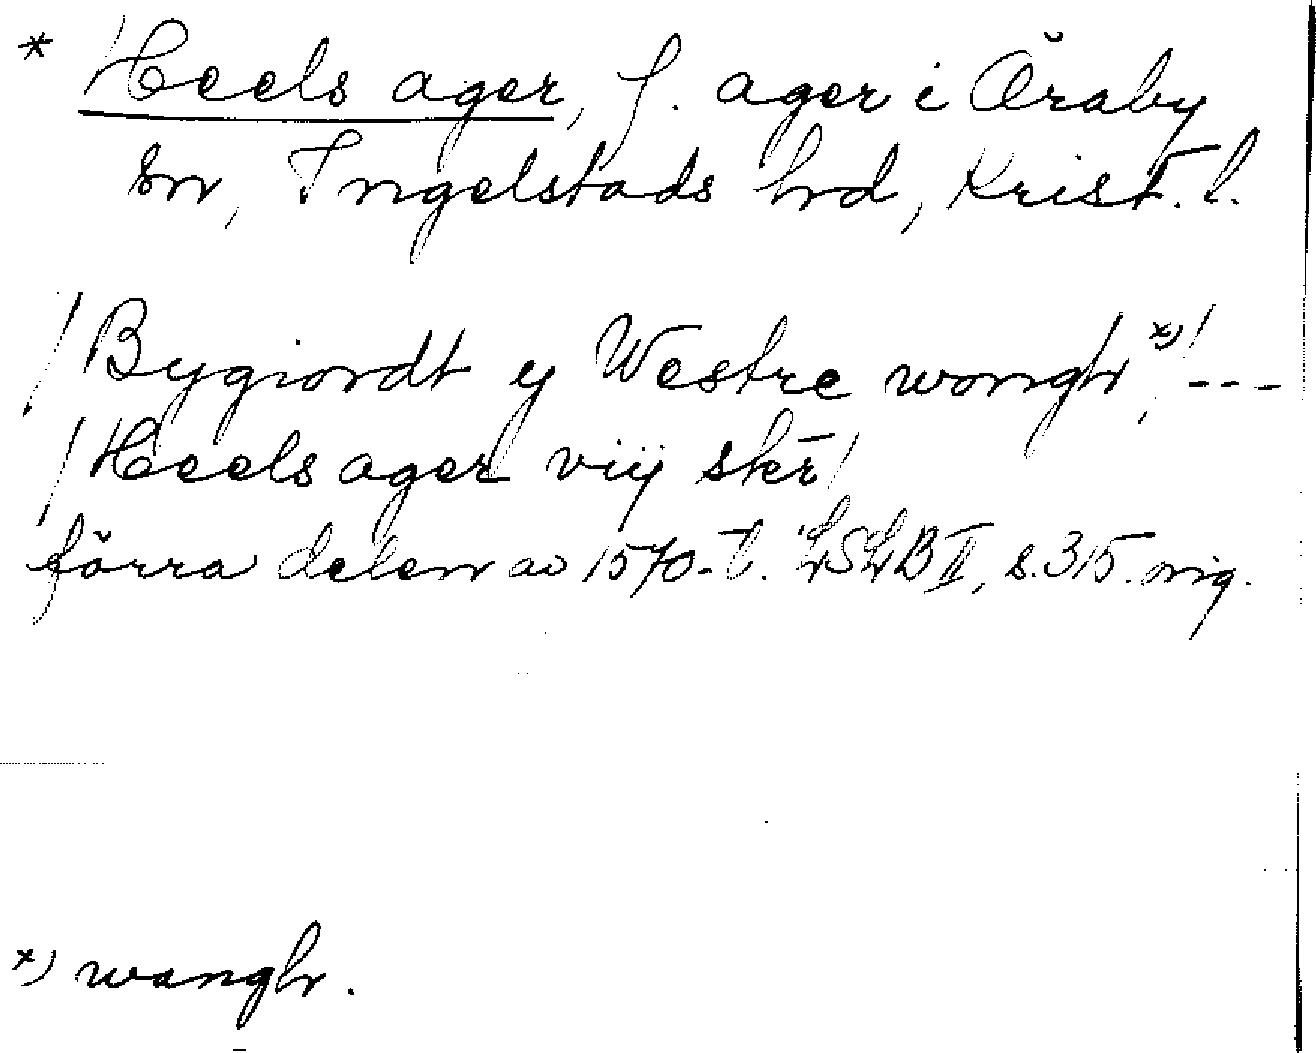 * Heels ager, f. ager i Öraby
sn, Ingelstads hrd, Krist. l.
/Bygiordt y Westre wongh *)/ ---
/Heels ager viij sker/
förra delen av 1570-t. LSLB II, s. 315. orig.
*) wangh.